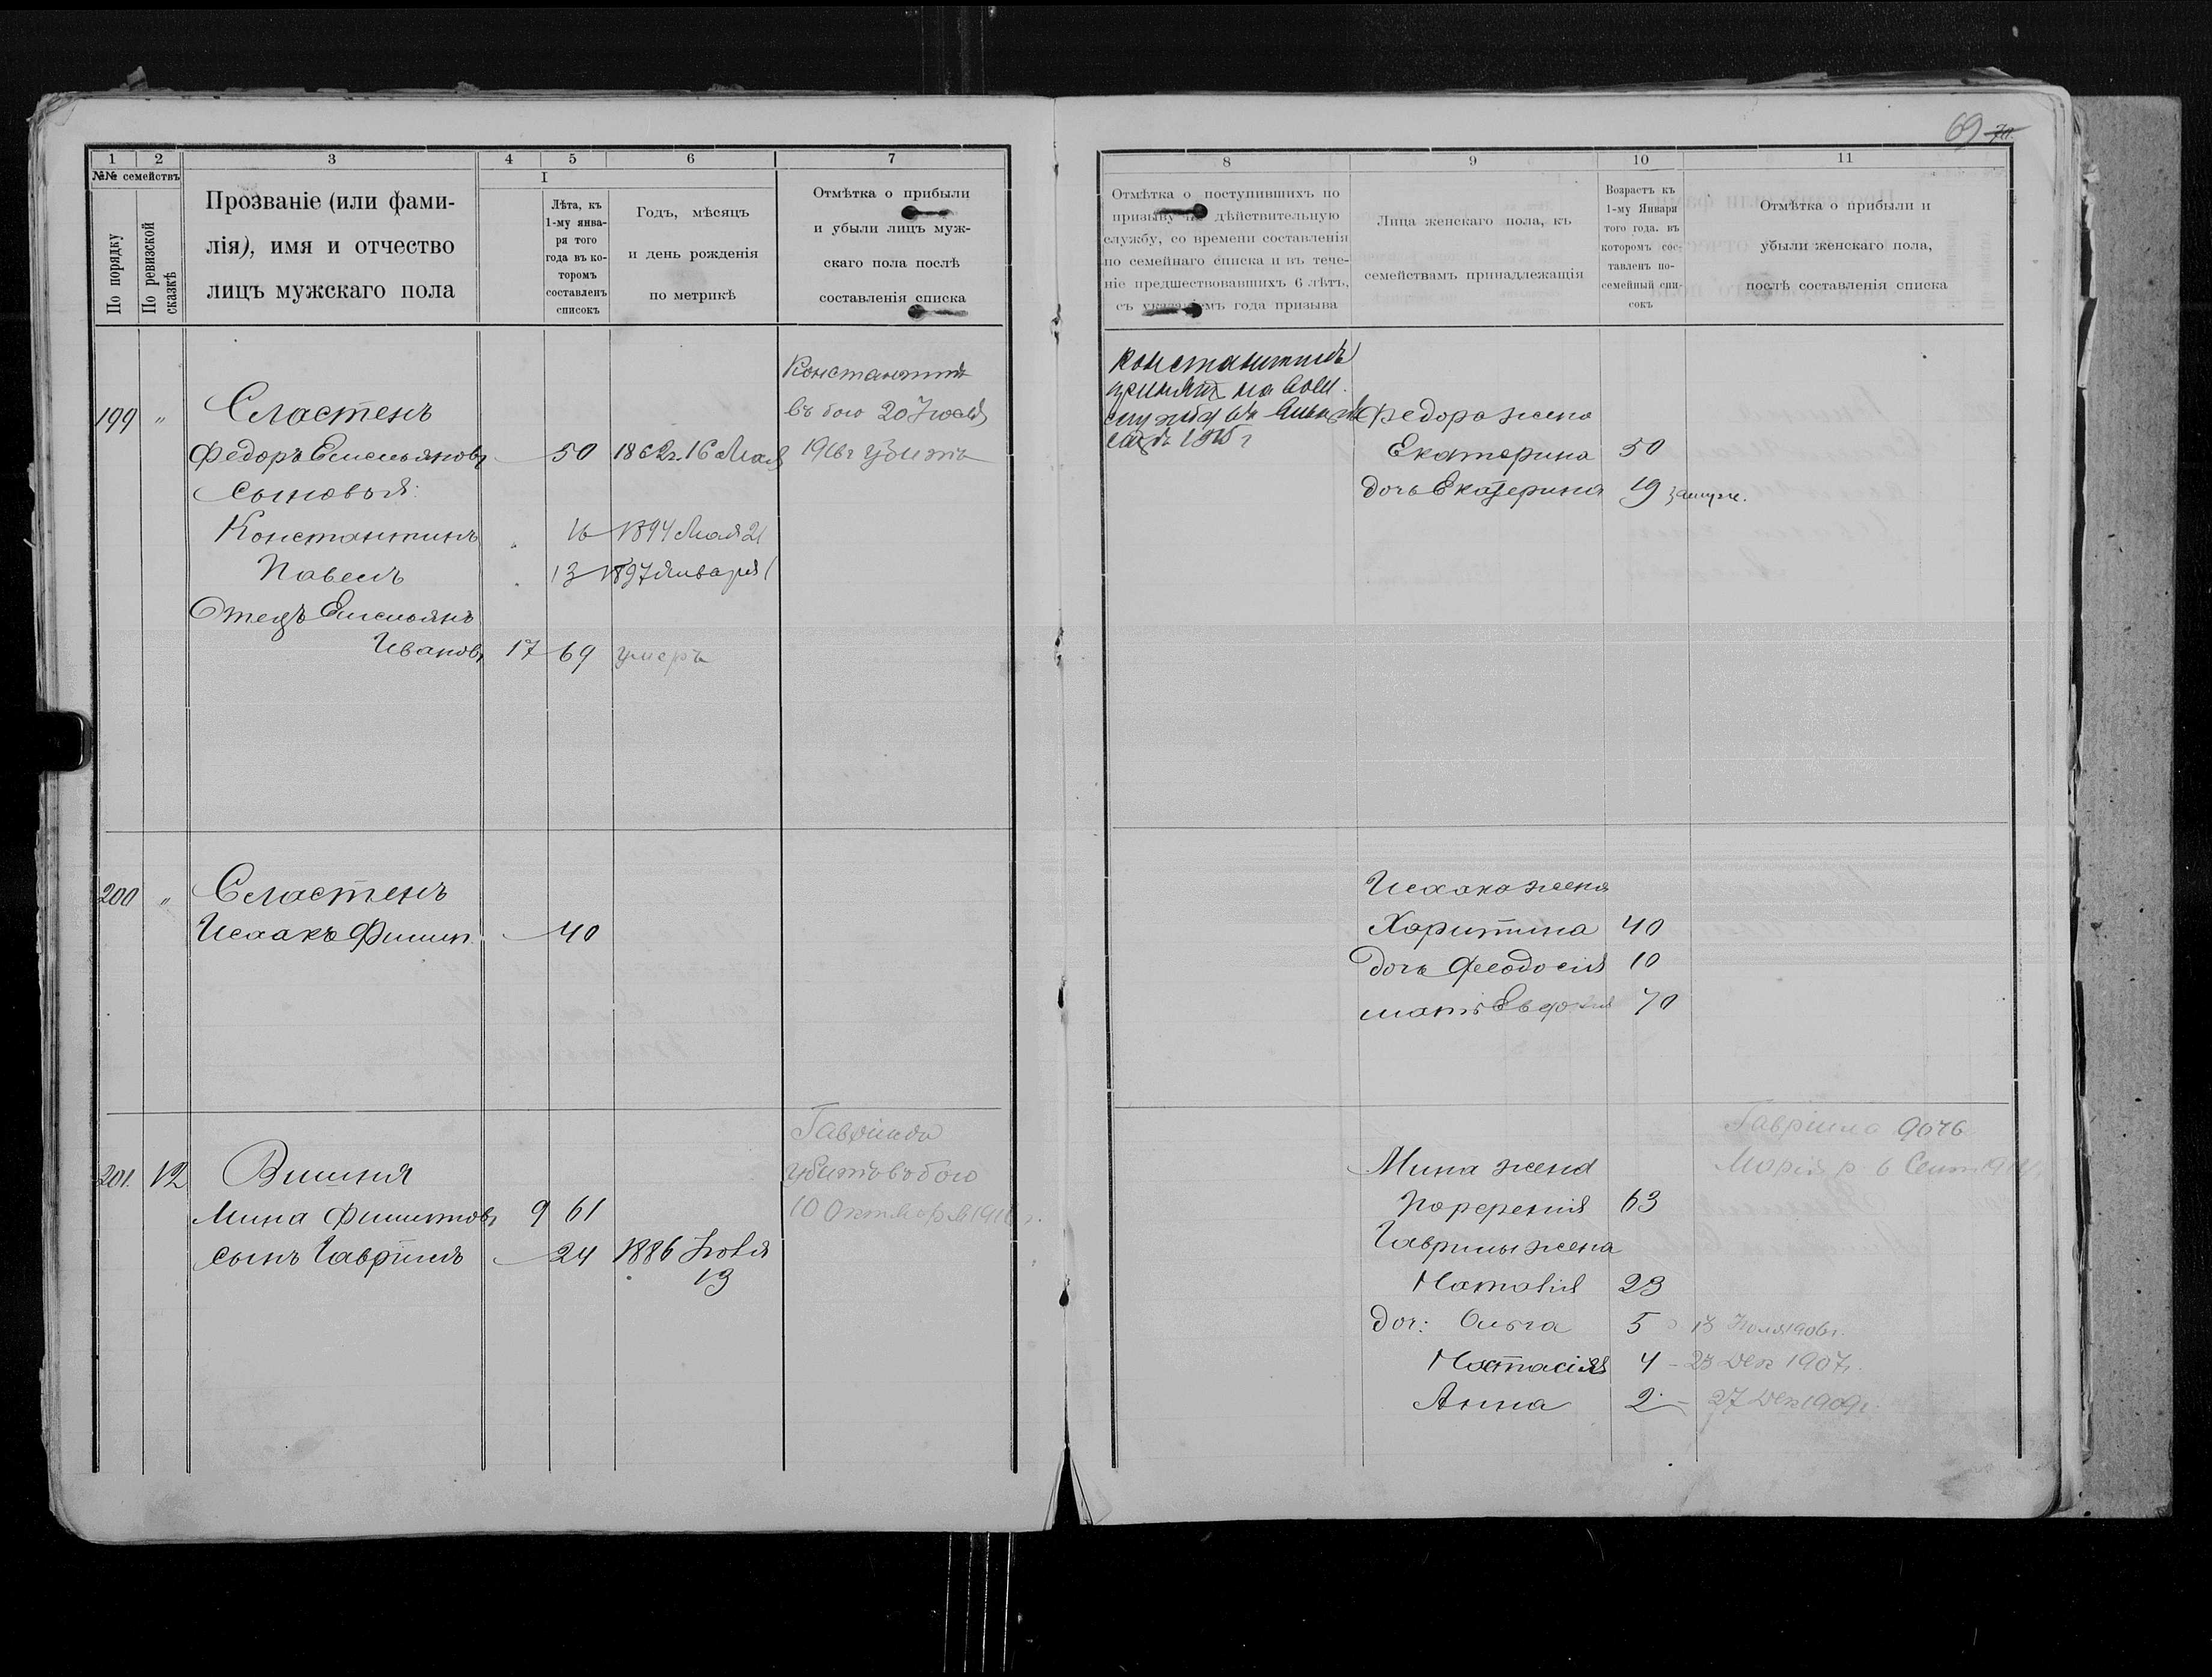 69 70.
1 2 3 4 5 6 7
№№ семействъ
По порядку
По ревизской сказкѣ
Прозваніе (или фами-
лія), имя и отчество
лицъ мужскаго пола
I
Лѣта, къ
1-му янва-
ря того
года въ ко-
торомъ
составленъ
списокъ
Годъ, мѣсяцъ
и день рожденія
по метрикѣ
Отмѣтка о прибыли
и убыли лицъ муж-
скаго пола послѣ
составленія списка
8 9 10 11
Отмѣтка о поступившихъ по
призыву на дѣйствительную
службу, со времени составленія
по семейнаго списка и въ тече-
ніе предшествовавшихъ 6 лѣтъ,
съ указаніемъ года призыва
Лица женскаго пола, къ
семействамъ принадлежащія
Возрастъ къ
1-му Января
того года, въ
которомъ сос-
тавленъ по-
семейный спи-
сокъ
Отмѣтка о прибыли и
убыли женскаго пола,
послѣ составленія списка
199 " Сластенъ
Федоръ Емельяновъ 50 1862г. 16 Мая
Сыновья:
Константинъ 16 1894 Мая 21
Павелъ 13 1897 Января 1
Отецъ Емельянъ
Ивановъ 17 69 умеръ
Константинъ
въ бою 20 Іюля
1916г убитъ
Константинъ
принятъ на воен.
службу въ
1915 г
Федора жена
Екатерина 50
дочь Екатерина 19 замуж.
200 " Сластенъ
Исаакъ Филип. 40
Исаака жена
Харитина 40
дочь Феодосія 10
мать Евдокія 70
201. 12 Вишня
Мина Филиповъ 9 61
сынъ Гавріилъ 24 1886 Іюля
13
Гавріилъ
убитъ въ бою
10 Октября 191 г.
Мина жена
Порфенія 63
Гавріилы жена
Наталія 23
доч: Ольга 5 13 Іюля 1906г.
Настасія 4 - 23 Дек 1907г.
Анна 2 - 27 Дек 1909г.
Гавріила дочь
Марія р. 6 Сент.